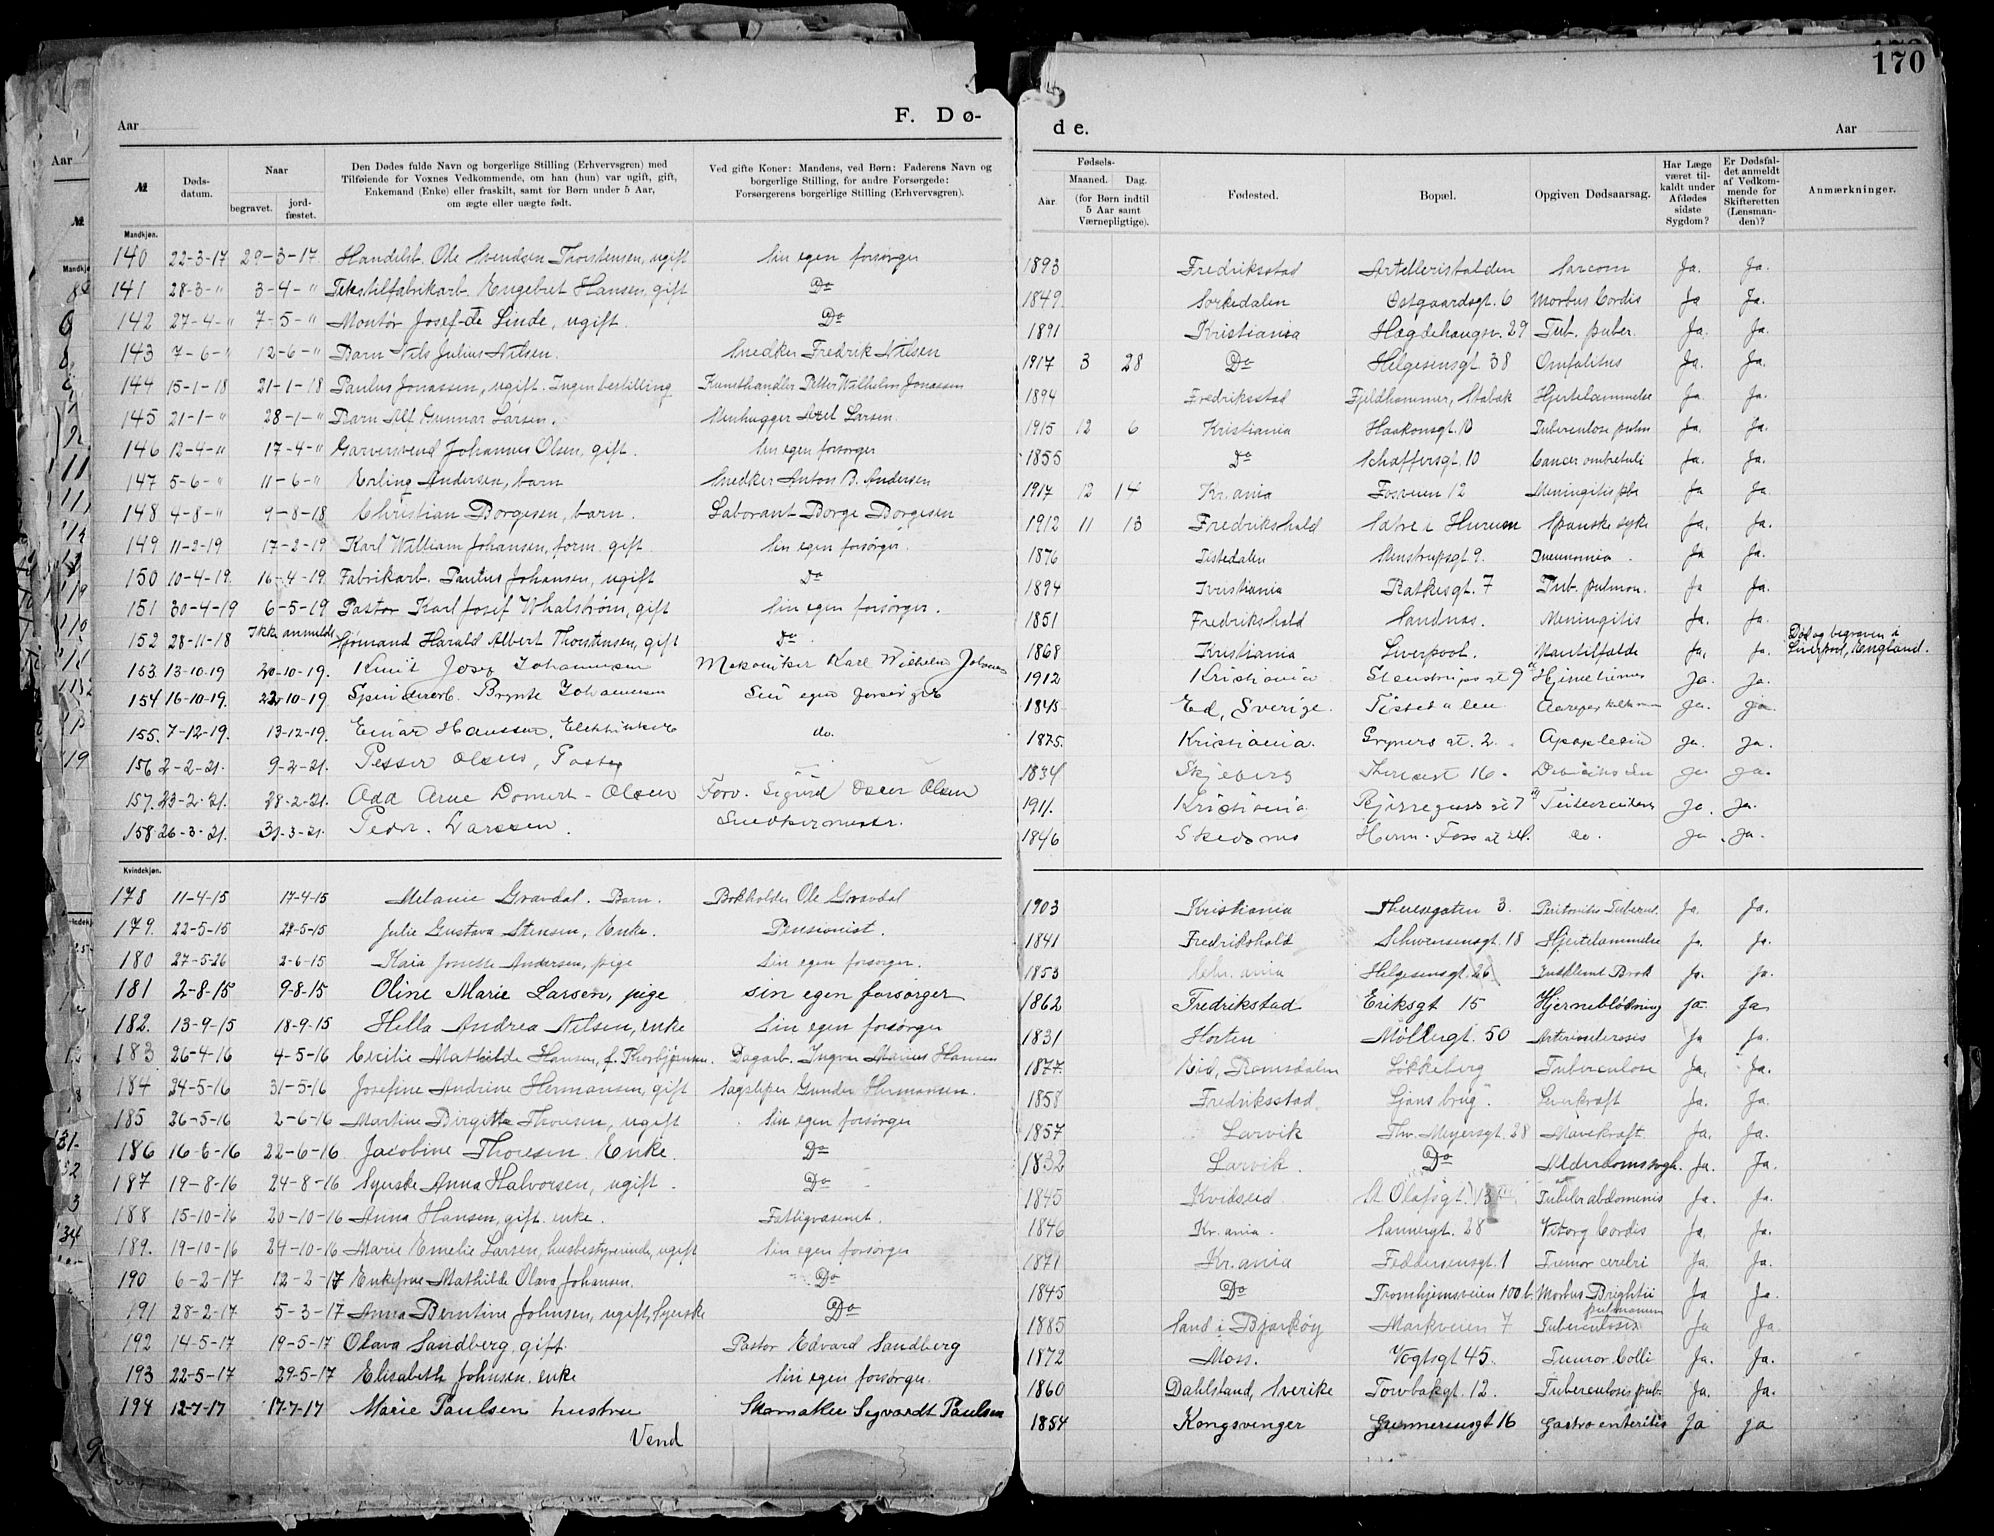 170
Aar F. Dø-
de. Aar
№ Døds-datum. Naar begravet. jord-fæstet. Den Dødes fulde Navn og borgerlige Stilling (Erhvervsgren) med Tilføiende for Voxnes Vedkommende, om han (hun) var ugift, gift, Enkemand (Enke) eller fraskilt, samt for Børn under 5 Aar, om ægte eller uægte født. Ved gifte Koner: Mandens, ved Børn: Faderens Navn og borgerlige Stilling, for andre Forsørgede: Forsørgerens borgerlige Stilling (Erhvervsgren).
Fødsels- Aar Maaned. Dag. (for Børn indtil 5 Aar samt Værnepligtige). Fødested. Bopæl. Opgiven Dødsaarsag. Har Læge været til-kaldt under Afdødes sidste Sygdom? Er Dødsfal-det anmeldt af Vedkom-mende for Skifteretten (Lensman-den)? Anmærkninger.
Mandkjøn.
140 22-3-17 29-3-17 Handelsb. Ole Svendsen Thorstensen, ugift Sin egen forsørger 1893 Fredriksstad Artelleristalden Sarcom Ja. Ja.
141 28-3-" 3-4-" Tekstilfabrikarb. Engebret Hansen, gift Do 1849 Sørkedalen Østgaardsgt. 6 Morbus Cordis Ja Ja.
142 27-4-" 7-5-" Montør Josef de Linde, ugift Do 1891 Kristiania Hægdehaugsv. 29 Tub. puber. Ja. Ja.
143 7-6-" 12-6-" Barn Nils Julius Nilsen. Snedker Fredrik Nilsen 1917 3 28 Do Helgesensgt 38 Omfalitus Ja. Ja.
144 15-1-18 21-1-18 Paulus Jonassen, ugift. Ingen bestilling Kunsthandler Petter Wilhelm Jonassen 1894 Fredriksstad Fjeldhammer, Stabæk Hjertelammelse Ja. Ja.
145 21-1-" 28-1-" Barn Alf Gunnar Larsen. Stenhugger Axel Larsen 1915 12 6 Kristiania Haakonsgt. 10 Tuberculose pulm Ja. Ja.
146 12-4-" 17-4-" Garversvend Johannes Olsen, gift. Sin egen forsørger 1855 Do Schaffersgt. 10 Cancer Ja. Ja.
147 5-6-" 11-6-" Erling Andersen, barn Snedker Anton B. Andersen 1917 12 14 Kr.ania Fosveien 12 Meningitis Ja Ja.
148 4-8-" 9-8-18 Christian Borgesen, barn. Laborant Borge Borgesen 1912 11 13 Fredrikshald Sætre i Hurum Spanske syke Ja. Ja.
149 11-2-19 17-2-19 Karl William Johansen, form. gift. Sin egen forsørger. 1876 Tistedalen Stenstrupsgt 9. Pneumonia. Ja Ja.
150 10-4-19. 16-4-19. Fabrikarb. Paulus Johansen, ugift Do 1894 Kristiania Ratkesgt. 7 Tub. pulmon. Ja Ja.
151 30-4-19 6-5-19 Pastor Karl Josef Whalstrøm, gift Sin egen forsørger. 1851 Fredrikshald Sandnæs. Meningitis Ja. Ja.
152 28-11-18 Ikke anmeldt Sjømand Harald Albert Thorstensen, gift Do. 1868 Kristiania Liverpool. Ja. Ja. Død og begraven i Liverpool, England.
153. 13-10-19 20-10-19. Knut Josef Johannesen Mekaniker Karl Wilhelm Johannes 1912 Kristiania Stenstrups gt 9 Ja. Ja.
154 16-10-19. 22-10-19. Spinderarb. Bernt Johannesen Sin egen forsørger 1845 Ed, Sverige. Tistedalen Ja. ja
155. 7-12-19. 13-12-19. Einar Hanssen, Elektriker do. 1875. Kristiania. Gryners gt. 2. Apoplexia Ja. Ja.
156 2-2-21. 9-2-21. Petter Olsen, 1834 Skjeberg Theresest 16. Ja. Ja.
157. 23-2-21. 28-2-21. Odd Arne Domert-Olsen Forv. Sigurd Olsen 1911. Kristiania Bjerregaards gt 7 Tuberculose Ja. Ja.
158. 26-3-21. 31-3-21. Peder Larssen. Snedkermester. 1846 Skedsmo Herm. Foss gt 24. do. Ja Ja.
Kvindekjøn.
178 11-4-15 17-4-15 Melanie Gravdal. Barn. Bokholder Ole Gravdal 1903 Kristiania Theresegaten 3. Peritonitis Tubercul. Ja. Ja.
179. 22-5-15 29-5-15 Julie Gustava Stensen, Enke. Pensionist. 1841 Fredrikshald Schwensensgt. 18 Hjertelammelse Ja. Ja.
180 27-5-26 2-6-15 Kaia Josette Andersen, pige Sin egen forsørger. 1853 Chr.ania Helgesensgt. 26 Indklemt Brok Ja. Ja.
181 2-8-15 9-8-15 Oline Marie Larsen, pige sin egen forsørger 1862 Fredrikstad Eriksgt 15 Hjerneblødning ja Ja
182. 13-9-15 18-9-15 Hella Andrea Nilsen, enke Sin egen forsørger 1831 Horten Møllergt. 50 Arteriosclerosis Ja Ja.
183 26-4-16 4-5-16 Cecilie Mathilde Hansen, f. Thorbjørnsen. Dagarb. Ingvar Marius Hansen 1877. Eid, Romsdalen Løkkeberg Tuberculose Ja. Ja.
184 24-5-16 31-5-16 Josefine Andrine Hermansen, gift Sagsliper Gunder Hermansen. 1858 Fredriksstad Ljans brug. Leverkræft Ja. Ja.
185 26-5-16 2-6-16 Martine Birgitte Thoresen, ugift Sin egen forsørger 1857 Larvik Thv. Meyersgt. 28 Mavekræft. Ja. Ja.
186 16-6-16 22-6-16 Jacobine Thoresen Enke. Do 1832 Larvik. Do Alderdomssvagh. Ja. Ja.
187 19-8-16 24-8-16 Syerske Anna Halvorsen, ugift. Do 1845 Kvidseid St. Olafsgt. 13 Tuberk. abdomenis Ja. Ja.
188 15-10-16 20-10-16 Anna Hansen, gift. enke. Fattigvæsenet. 1846 Kr.ania. Sannergt. 28 Vitiorg Cordis Ja. Ja.
189. 19-10-16 24-10-16 Marie Emelie Larsen, husbestyrerinde, ugift Sin egen forsørger 1871 Kr.ania Feddersensgt. 1 Tumor cerebri Ja. Ja.
190 6-2-17 12-2-17 Enkefrue Mathilde Olava Johansen. Do 1845 Do Tromhjemsveien 100 b. Morbus Brightii Ja Ja.
191 28-2-17 5-3-17 Anna Berntine Johnsen, ugift, Syerske Do 1885 Sand i Bjarkøy Markveien 7 Tuberculosis pulmonum Ja Ja.
192 14-5-17 19-5-17 Olava Sandberg, gift. Pastor Edvard Sandberg 1872 Moss. Vogtsgt 45. Tumor Colli Ja. Ja.
193 22-5-17 29-5-17 Elisabeth Johnsen, enke Sin egen forsørger. 1860 Dahlsland, Sverike Torvbakgt. 12. Tuberculosis pub. Ja. Ja.
194 12-7-17 17-7-17 Marie Paulsen hustru Skomaker Sigvardt Paulsen 1854 Kongsvinger Gunnerensgt 16 Gastro enteritis Ja ja
Vend